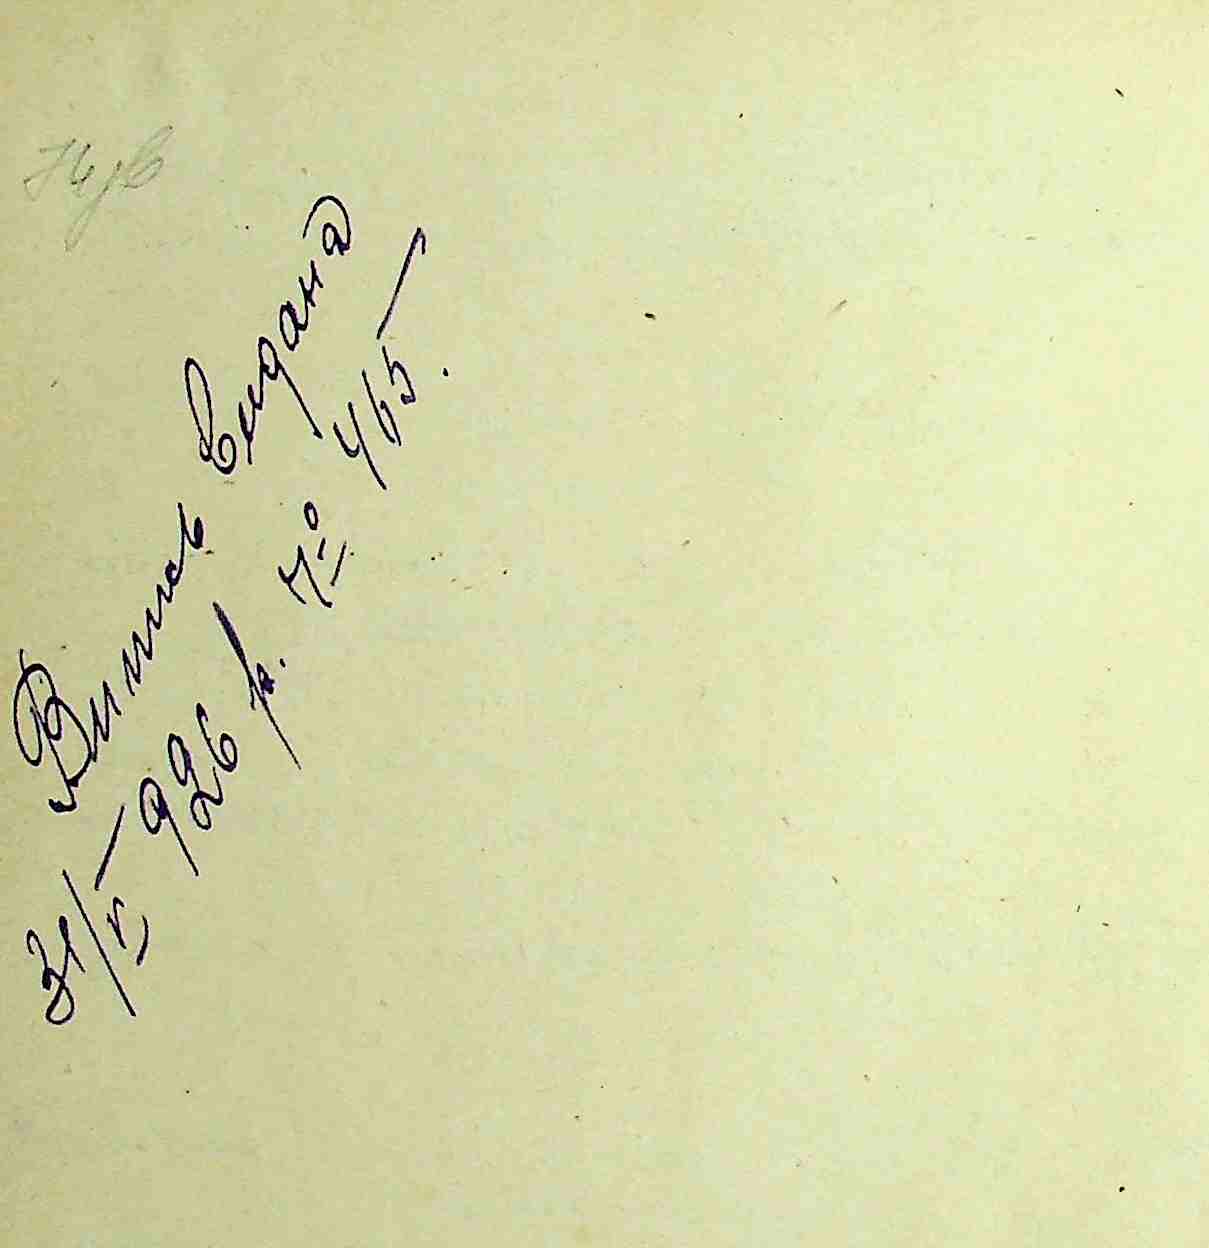 Випись видана
31/V 926 р. № 465.